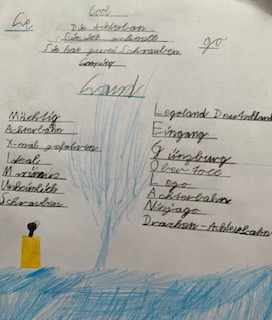 Cool
Le
Die Achterban
Sie ist schnell
go
Sie hat zwei Schrauben
Looping
Land
Mächtig
Achterbahn
X-mal gefahren
Ideal
M
Unheimlich
Schrauben
Legoland Deutschland
Eingang
Günzburg
Obertoll
Lego
Achterbahn
Ninjago
Drachen-Achterbahn